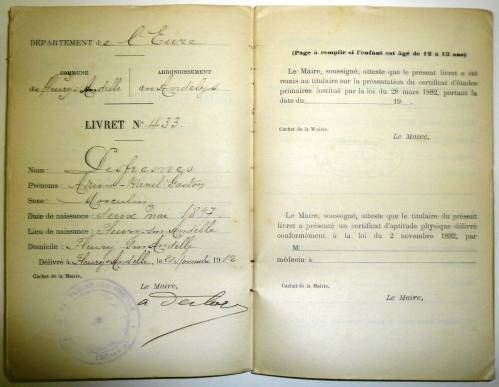 DÉPARTEMENT de l'Eure
COMMUNE
ARRONDISSEMENT
de Fleury s/ Andelle
des Andelys
LIVRET N° 433
Nom: Desfresnes
Prénoms: Gaston
Sexe: Masculin
Date de naissance: deux mai 1897
Lieu de naissance: Fleury s/ Andelle
Domicile: Fleury s/ Andelle
Délivré à Fleury s/ Andelle, le novembre 1912
Cachet de la Mairie.
Le Maire,
(Page à remplir si l'enfant est âgé de 12 à 13 ans)
Le Maire, soussigné, atteste que le présent livret a été
remis au titulaire sur la présentation du certificat d'études
primaires institué par la loi du 28 mars 1882, portant la
date du 19
Cachet de la Mairie.
Le Maire,
Le Maire, soussigné, atteste que le titulaire du présent
livret a présenté un certificat d'aptitude physique délivré
conformément à la loi du 2 novembre 1892, par
M.
médecin à
Cachet de la Mairie.
Le Maire,